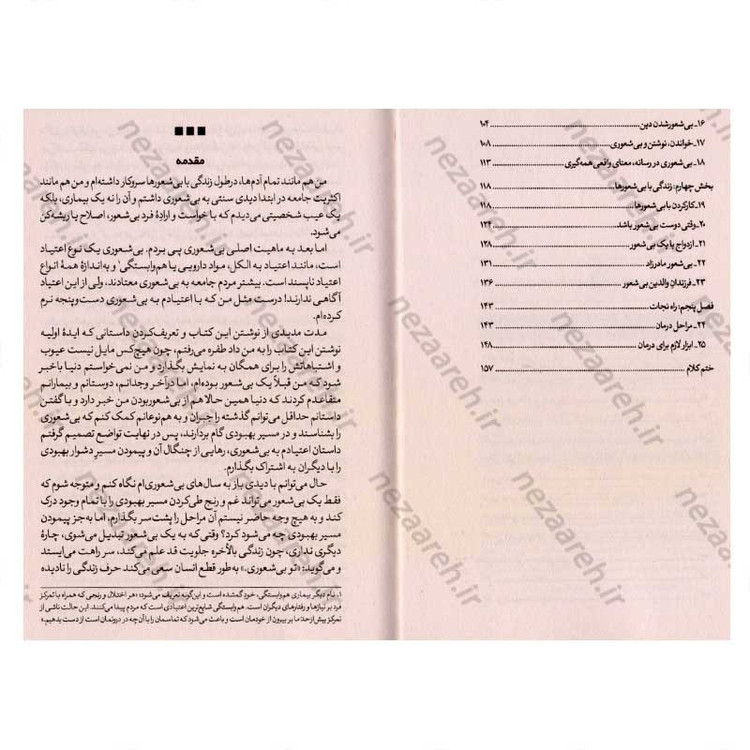 ۱۶ـ بی‌شعور شدن دین ........ ۱۰۴
۱۷ـ خواندن، نوشتن و بی‌شعوری ........ ۱۰۸
۱۸ـ بی‌شعوری در رسانه، معنای واقعی همه‌گیری ........ ۱۱۳
بخش چهارم: زندگی با بی‌شعورها ........ ۱۱۸
۱۹ـ کار کردن با بی‌شعورها ........ ۱۱۸
۲۰ـ وقتی دوست بی‌شعور باشد ........ ۱۲۴
۲۱ـ ازدواج با یک بی‌شعور ........ ۱۲۸
۲۲ـ بی‌شعور مادرزاد ........ ۱۳۱
۲۳ـ فرزندان والدین بی‌شعور ........ ۱۳۶
فصل پنجم: راه نجات ........ ۱۴۳
۲۴ـ مراحل درمان ........ ۱۴۳
۲۵ـ ابزار لازم برای درمان ........ ۱۴۸
ختم کلام ........ ۱۵۷
مقدمه
من هم مانند تمام آدم‌ها، در طول زندگی با بی‌شعورها سروکار داشته‌ام و من هم مانند
اکثریت جامعه در ابتدا دیدی سنتی به بی‌شعوری داشتم و آن را نه یک بیماری، بلکه
یک عیب شخصیتی می‌دیدم که با خواست و ارادهٔ فرد بی‌شعور، اصلاح یا ریشه‌کن
می‌شود.
اما بعد به ماهیت اصلی بی‌شعوری پی بردم. بی‌شعوری یک نوع اعتیاد
است، مانند اعتیاد به الکل، مواد دارویی یا هم‌وابستگی۱ و به‌اندازهٔ همهٔ انواع
اعتیاد ناپسند است. بیشتر مردم جامعه به بی‌شعوری معتادند، ولی از این اعتیاد
آگاهی ندارند! درست مثل من که با اعتیادم به بی‌شعوری دست‌وپنجه نرم
کرده‌ام.
مدت مدیدی از نوشتن این کتاب و تعریف‌کردن داستانی که ایدهٔ اولیه
نوشتن این کتاب را به من داد طفره می‌رفتم، چون هیچ‌کس مایل نیست عیوب
و اشتباهاتش را برای همگان به نمایش بگذارد و من نمی‌خواستم دنیا با خبر
شود که من قبلاً یک بی‌شعور بوده‌ام، اما در آخر وجدانم، دوستانم و بیمارانم
متقاعدم کردند که دنیا همین حالا هم از بی‌شعور بودن من خبر دارد و با گفتن
داستانم حداقل می‌توانم گذشته را جبران و به هم‌نوعانم کمک کنم که بی‌شعوری
را بشناسند و در مسیر بهبودی گام بردارند، پس در نهایت تواضع تصمیم گرفتم
داستان اعتیادم به بی‌شعوری، رهایی از چنگال آن و پیمودن مسیر دشوار بهبودی
را با دیگران به اشتراک بگذارم.
حال می‌توانم با دیدی باز به سال‌های بی‌شعوری‌ام نگاه کنم و متوجه شوم که
فقط یک بی‌شعور می‌تواند غم و رنج طی‌کردن مسیر بهبودی را با تمام وجود درک
کند و به هیچ وجه حاضر نیستم آن مراحل را پشت‌سر بگذارم، اما به‌جز پیمودن
مسیر بهبودی چه می‌شود کرد؟ وقتی که به یک بی‌شعور تبدیل می‌شوی، چارهٔ
دیگری نداری، چون زندگی بالأخره جلویت قد علم می‌کند، سر راهت می‌ایستد
و می‌گوید: «تو بی‌شعوری.» به‌طور قطع انسان سعی می‌کند حرف زندگی را نادیده
۱. نام دیگر بیماری هم‌وابستگی، «خود گمشده» است و این‌گونه تعریف می‌شود: «هر اختلال و رنجی که همراه با تمرکز
فرد بر نیازها و رفتارهای دیگران است. هم‌وابستگی شایع‌ترین اعتیادی است که مردم پیدا می‌کنند. این حالت ناشی از
تمرکز بیش از حد ما بر بیرون از خودمان است و باعث می‌شود که تماسمان را با آن‌چه در درونمان است از دست بدهیم.»
nezaareh.ir